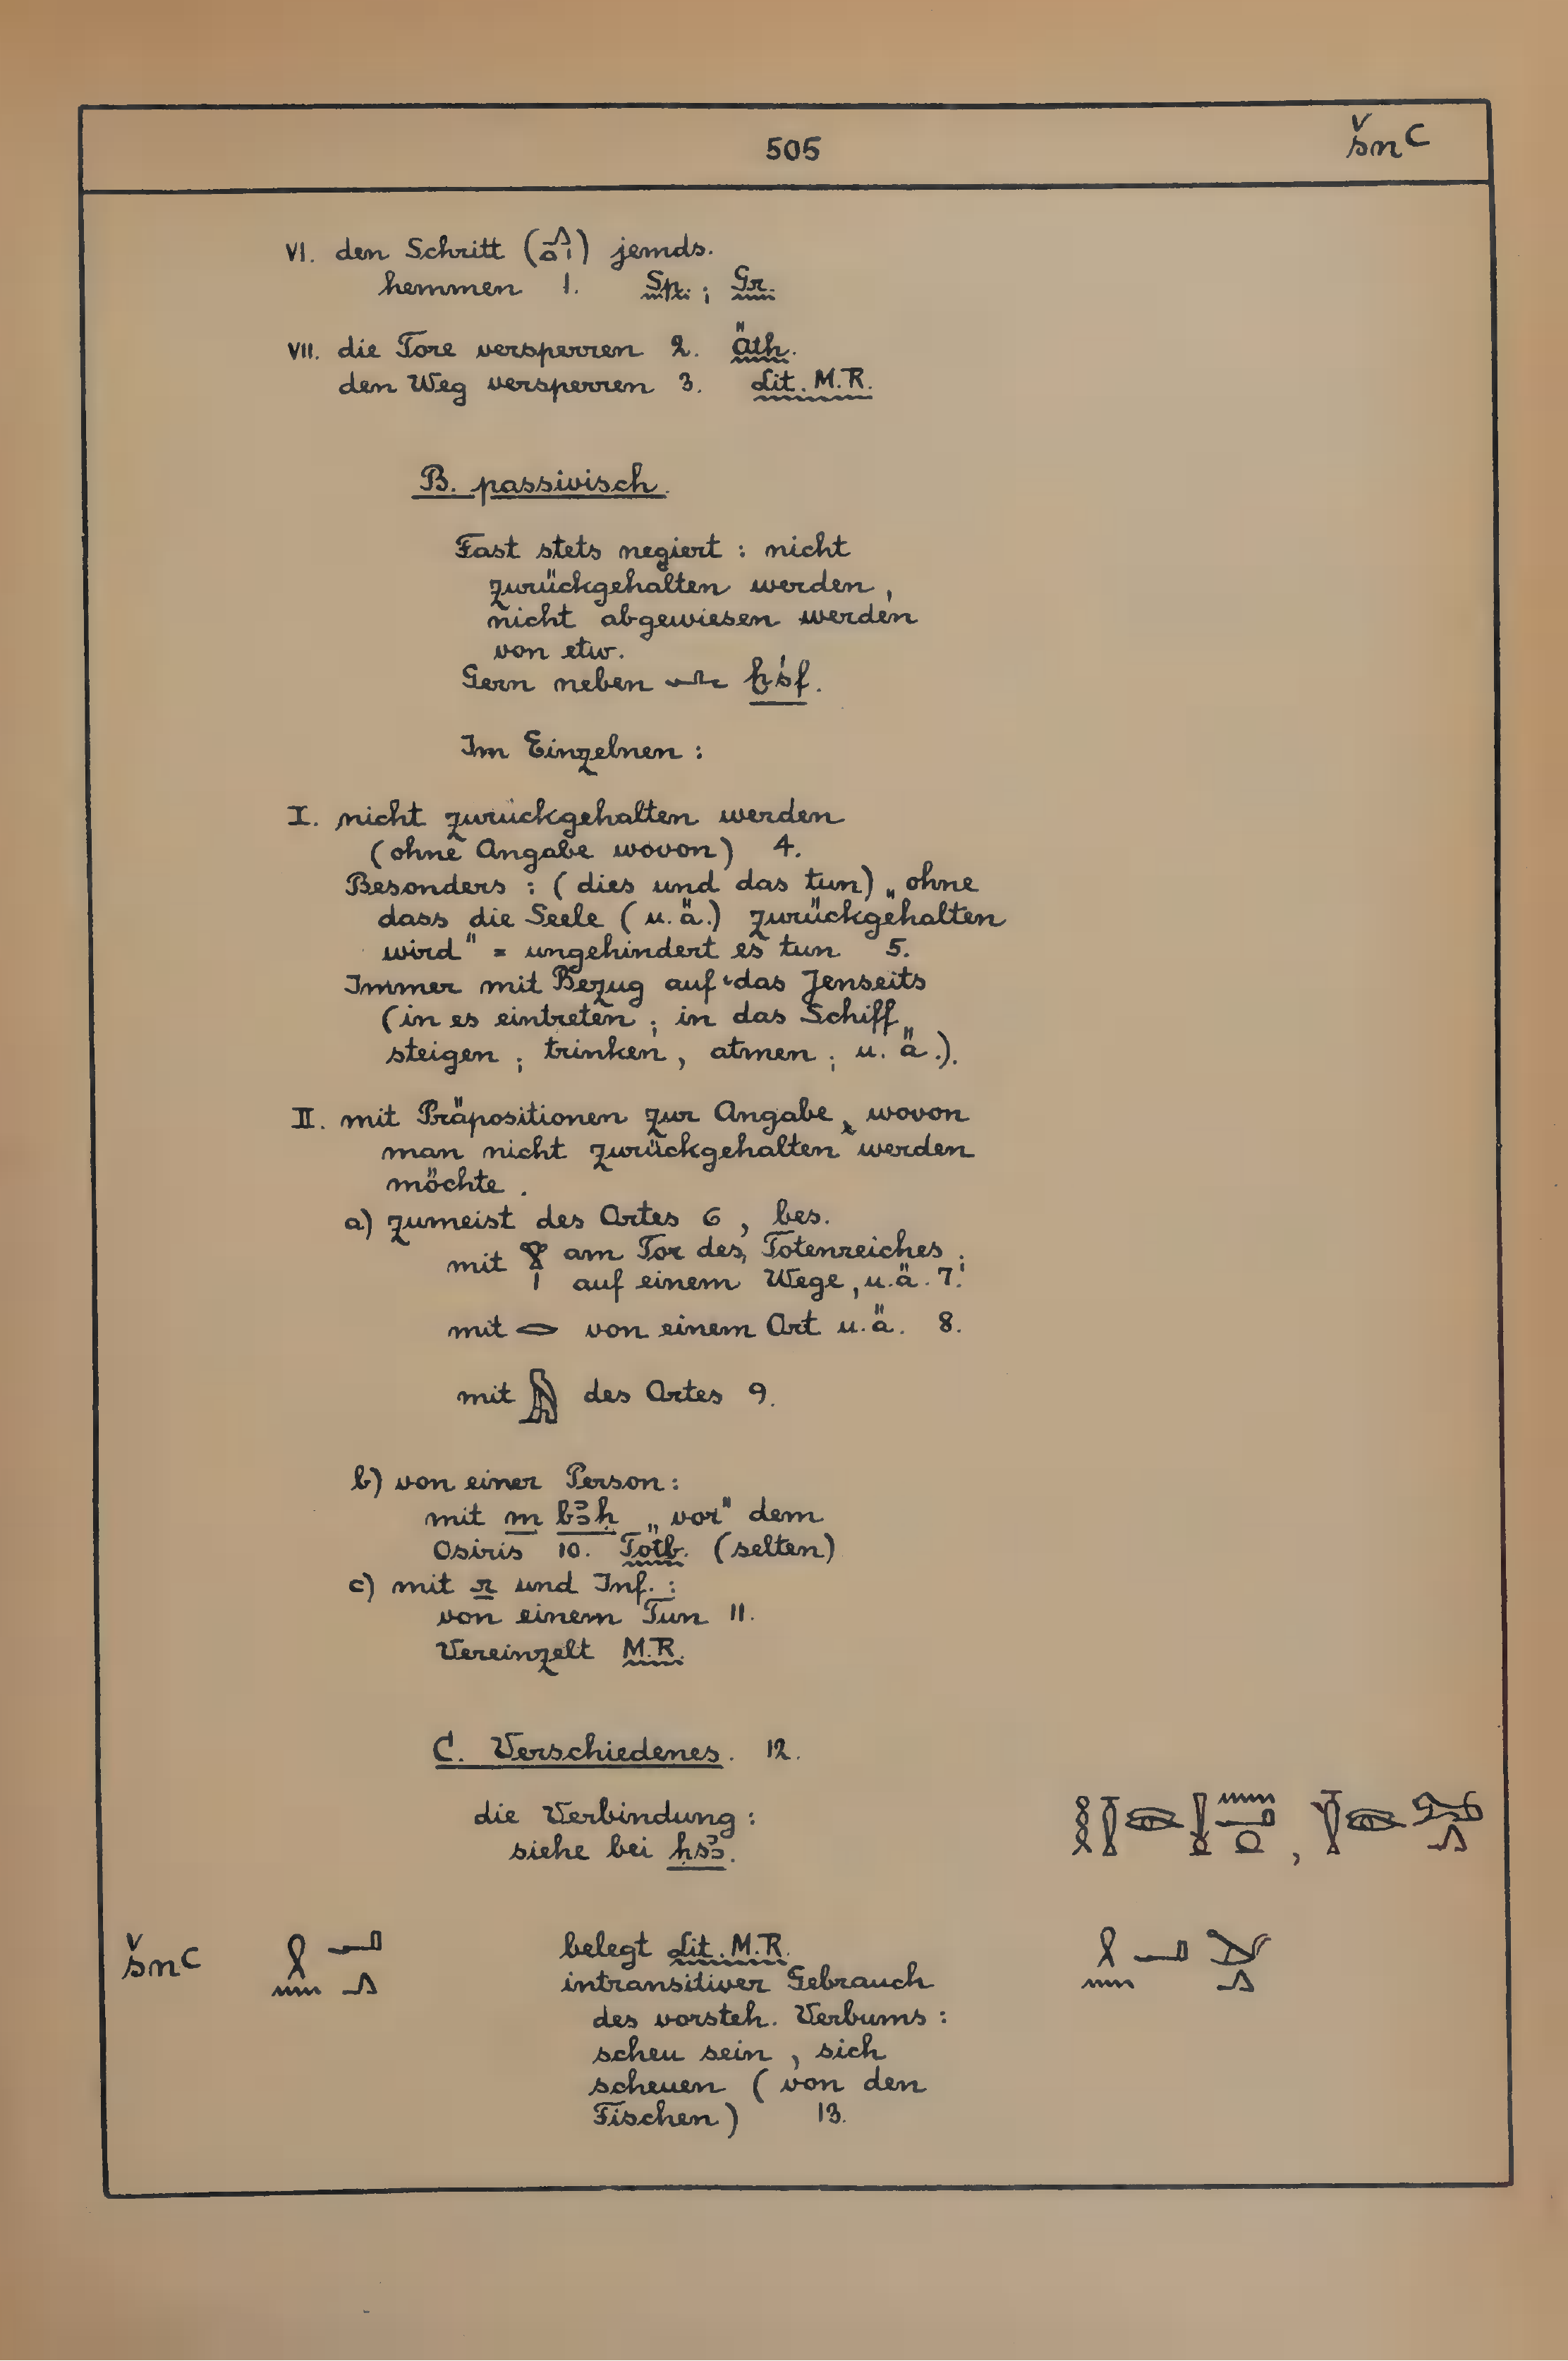 505
šnꜥ
VI. den Schritt (𓂻𓏏𓏤) jemds.
hemmen 1. Sp.; Gr.
VII. die Tore versperren 2. Äth.
den Weg versperren 3. Lit. M.R.
B. passivisch.
Fast stets negiert : nicht
zurückgehalten werden,
nicht abgewiesen werden
von etw.
Gern neben 𓂜 ḫśf.
Im Einzelnen :
I. nicht zurückgehalten werden
(ohne Angabe wovon) 4.
Besonders : (dies und das tun) „ohne
dass die Seele (u.ä.) zurückgehalten
wird" = ungehindert es tun 5.
Immer mit Bezug auf das Jenseits
(in es eintreten; in das Schiff
steigen; trinken, atmen; u.ä.).
II. mit Präpositionen zur Angabe, wovon
man nicht zurückgehalten werden
möchte.
a) zumeist des Ortes 6, bes.
mit 𓁷𓏤 am Tor des Totenreiches;
auf einem Wege, u.ä. 7.
mit 𓂋 von einem Ort u.ä. 8.
mit 𓅓 des Ortes 9.
b) von einer Person:
mit m bꜣḥ „vor" dem
Osiris 10. Totb. (selten)
c) mit r und Inf. :
von einem Tun 11.
Vereinzelt M.R.
C. Verschiedenes. 12.
die Verbindung :
siehe bei ḥsꜣ.
šnꜥ 𓍲𓈖𓂝𓂻 belegt Lit. M.R. 𓍲𓈖𓂝
intransitiver Gebrauch
des vorsteh. Verbums :
scheu sein, sich
scheuen (von den
Fischen) 13.